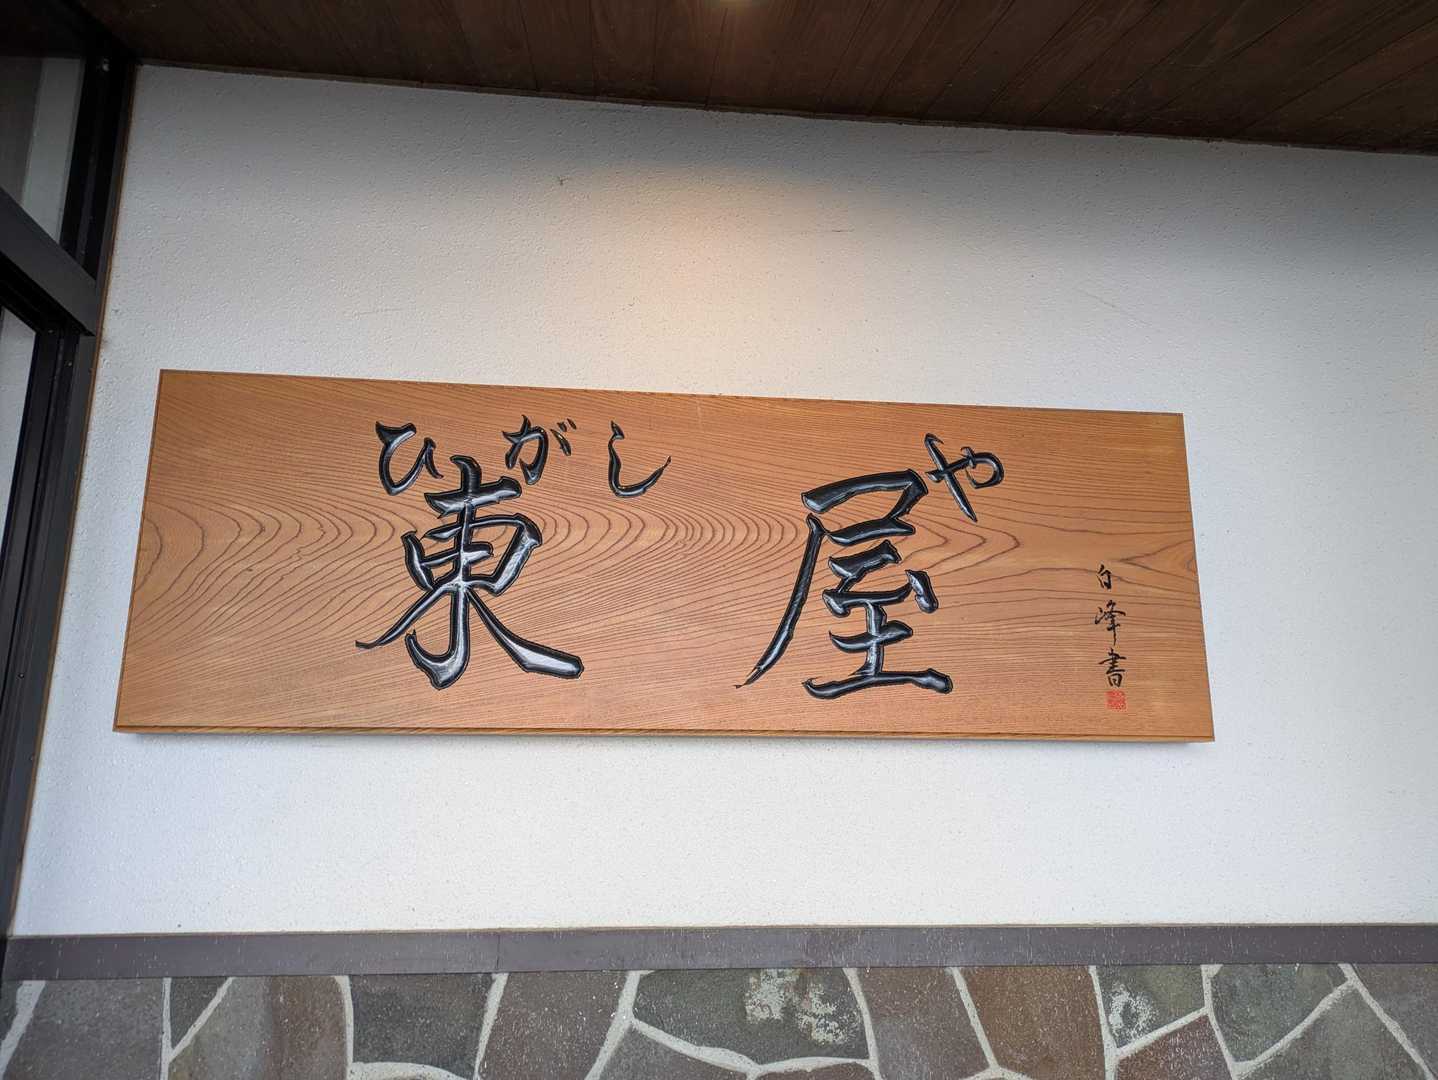 ひがし や
東屋
白峰書